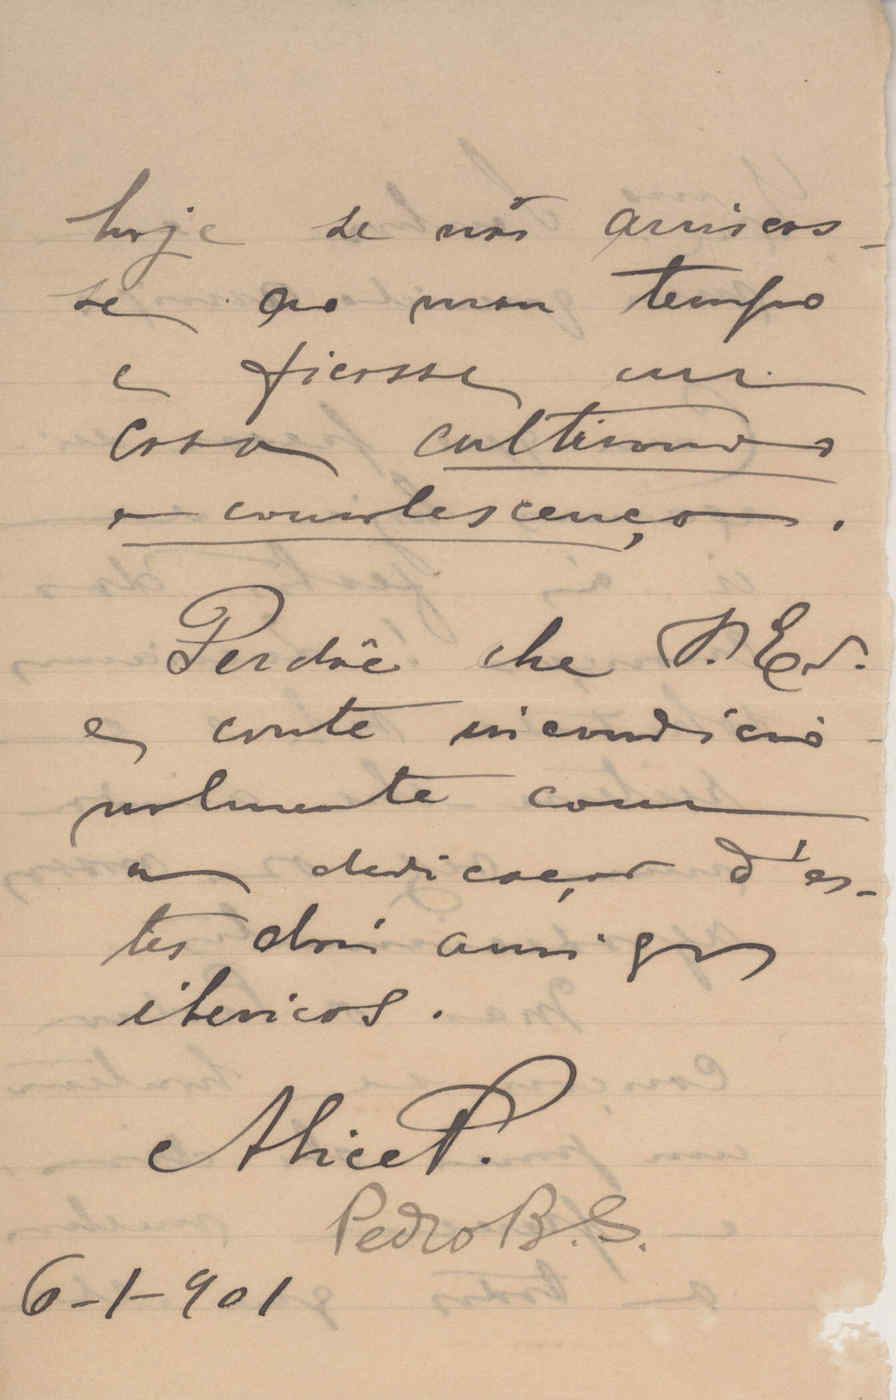 hoje se não arriscas-
se ao mau tempo
e ficasse em
casa cultivando
a convalescença.
Perdôe-lhe V. Ex.
e conte incondicio-
nalmente com
a dedicação d'es-
tes dois amigos
ibericos.
Alice P.
Pedro B. S.
6-1-901